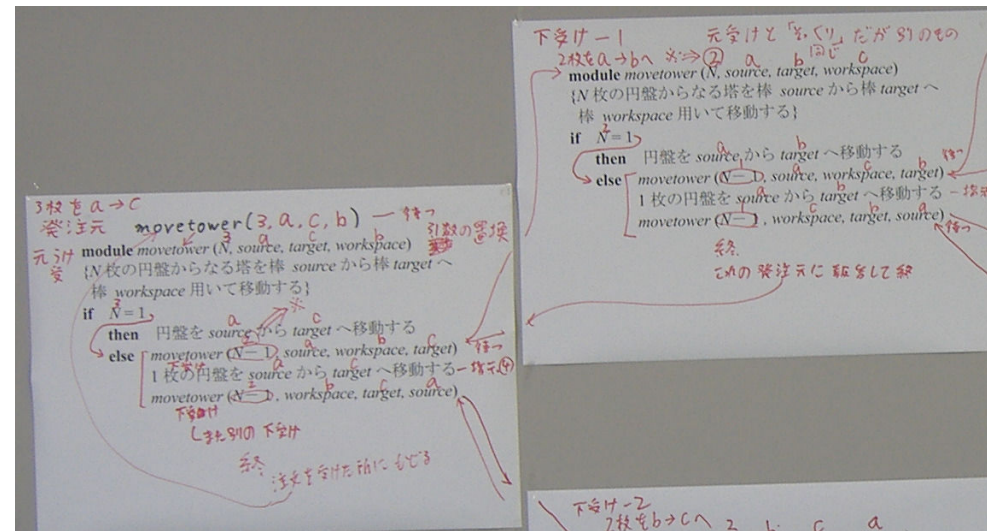 3枚を a→c
発注元 movetower(3, a, c, b) — 待つ
元うけ 引数の置換
3 a c b
module movetower (N, source, target, workspace)
{N 枚の円盤からなる塔を棒 source から棒 target へ
棒 workspace 用いて移動する}
3
if N = 1
a c
then 円盤を source から target へ移動する
※
2 a b c
else movetower (N − 1, source, workspace, target) 待つ
下受け a c
1 枚の円盤を source から target へ移動する — 指示④
2 b c a
movetower (N − 1, workspace, target, source)
下受け
また別の下受け
終
注文を受けた所にもどる
下受け-1 元受けと「そっくり」だが別のもの
2枚を a→b へ ※⇒②
同じ
2 a b c
module movetower (N, source, target, workspace)
{N 枚の円盤からなる塔を棒 source から棒 target へ
棒 workspace 用いて移動する}
2
if N = 1
a b
then 円盤を source から target へ移動する
1 a c b 待つ
else movetower (N − 1, source, workspace, target)
a b
1 枚の円盤を source から target へ移動する — 指示
1 c b a
movetower (N − 1, workspace, target, source) 待つ
終
これの発注元に報告して終
下受け-2
2枚を b→c へ b c a